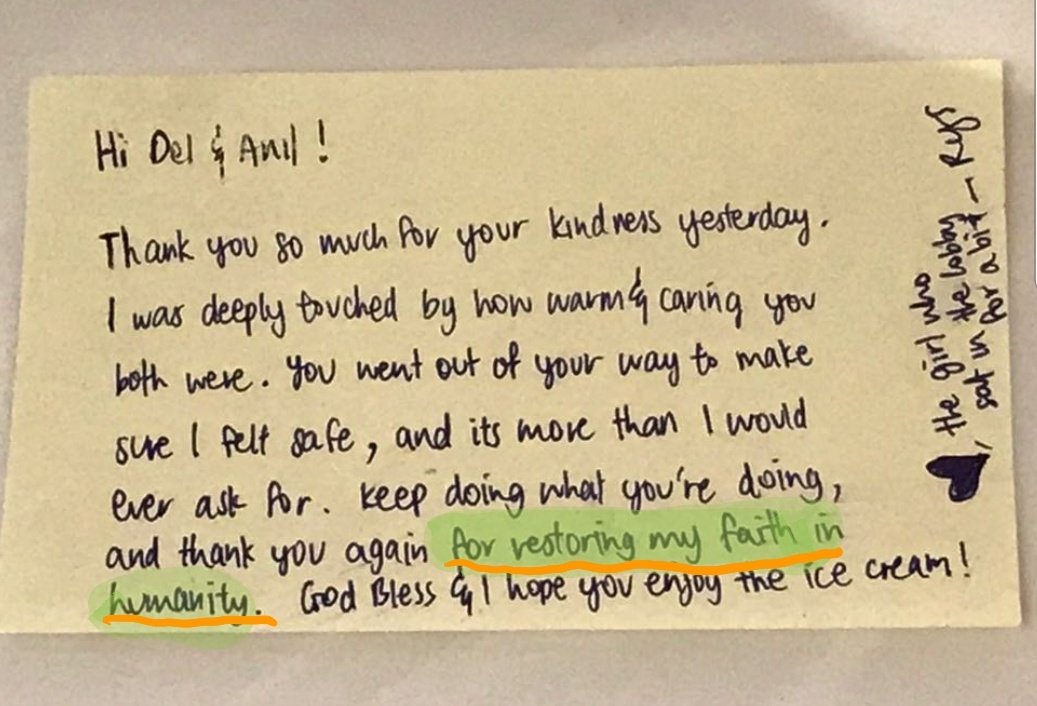 Hi Del & Anil !
Thank you so much for your kindness yesterday.
I was deeply touched by how warm & caring you
both were. You went out of your way to make
sure I felt safe, and its more than I would
ever ask for. Keep doing what you're doing,
and thank you again for restoring my faith in
humanity. God Bless & I hope you enjoy the ice cream!
♥, the girl who
sat in the lobby
for a bit –